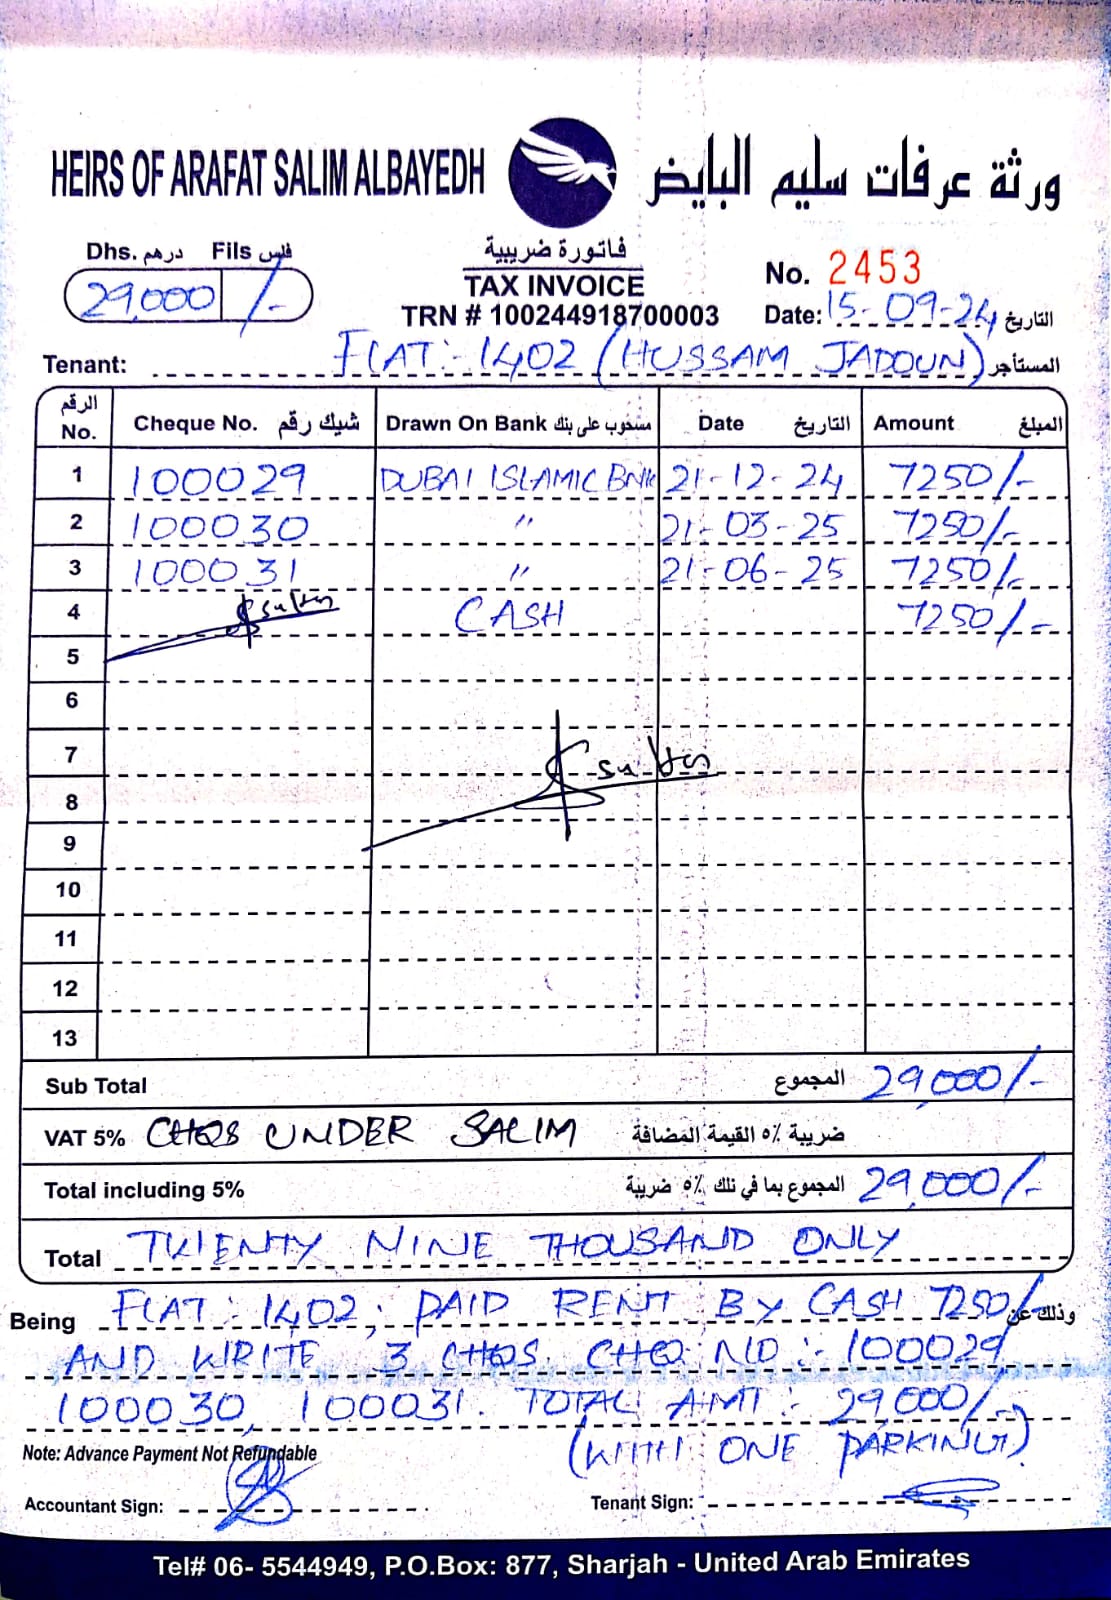 HEIRS OF ARAFAT SALIM ALBAYEDH ورثة عرفات سليم البايض
Dhs. درهم Fils فلس
29,000 /-
فاتورة ضريبية
TAX INVOICE
TRN # 100244918700003
No. 2453
Date: 15-09-24 التاريخ
Tenant: FLAT:-1402 (HUSSAM JADOUN) المستأجر
الرقم No. Cheque No. شيك رقم Drawn On Bank مسحوب على بنك Date التاريخ Amount المبلغ
1 100029 DUBAI ISLAMIC BNK 21-12-24 7250/-
2 100030 " 21-03-25 7250/-
3 100031 " 21-06-25 7250/-
4 CASH 7250/-
5
6
7
8
9
10
11
12
13
Sub Total المجموع 29,000/-
VAT 5% CHQS UNDER SALIM ضريبة ٥٪ القيمة المضافة
Total including 5% المجموع بما في تلك ٥٪ ضريبة 29,000/-
Total TWENTY NINE THOUSAND ONLY
Being FLAT:-1402, PAID RENT BY CASH 7250/- وذلك عن
AND WRITE 3 CHQS. CHQ: NO:- 100029
100030, 100031. TOTAL AMT:- 29,000/-
Note: Advance Payment Not Refundable (WITH ONE PARKING)
Accountant Sign: Tenant Sign:
Tel# 06- 5544949, P.O.Box: 877, Sharjah - United Arab Emirates